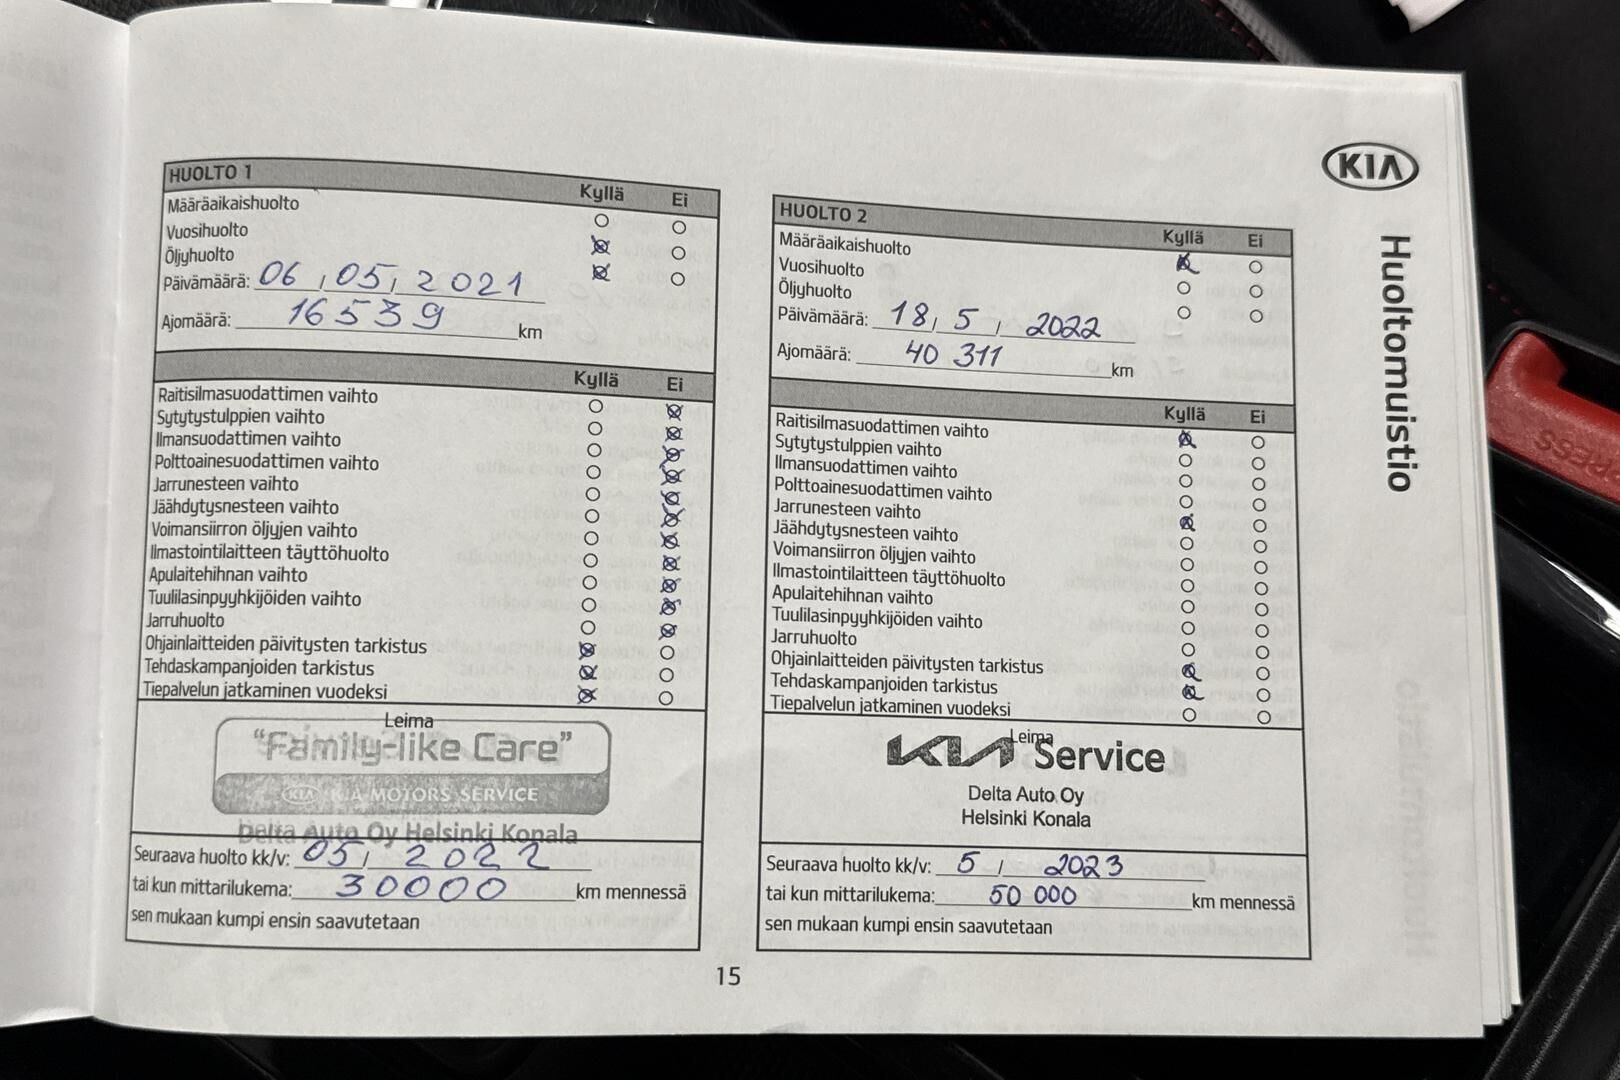 KIA
Huoltomuistio
HUOLTO 1
Kyllä Ei
Määräaikaishuolto
Vuosihuolto
Öljyhuolto
Päivämäärä: 06, 05, 2021
Ajomäärä: 16539 km
Kyllä Ei
Raitisilmasuodattimen vaihto
Sytytystulppien vaihto
Ilmansuodattimen vaihto
Polttoainesuodattimen vaihto
Jarrunesteen vaihto
Jäähdytysnesteen vaihto
Voimansiirron öljyjen vaihto
Ilmastointilaitteen täyttöhuolto
Apulaitehihnan vaihto
Tuulilasinpyyhkijöiden vaihto
Jarruhuolto
Ohjainlaitteiden päivitysten tarkistus
Tehdaskampanjoiden tarkistus
Tiepalvelun jatkaminen vuodeksi
Leima
"Family-like Care"
KIA KIA MOTORS SERVICE
Delta Auto Oy Helsinki Konala
Seuraava huolto kk/v: 05, 2022
tai kun mittarilukema: 30000 km mennessä
sen mukaan kumpi ensin saavutetaan
HUOLTO 2
Kyllä Ei
Määräaikaishuolto
Vuosihuolto
Öljyhuolto
Päivämäärä: 18, 5, 2022
Ajomäärä: 40 311 km
Kyllä Ei
Raitisilmasuodattimen vaihto
Sytytystulppien vaihto
Ilmansuodattimen vaihto
Polttoainesuodattimen vaihto
Jarrunesteen vaihto
Jäähdytysnesteen vaihto
Voimansiirron öljyjen vaihto
Ilmastointilaitteen täyttöhuolto
Apulaitehihnan vaihto
Tuulilasinpyyhkijöiden vaihto
Jarruhuolto
Ohjainlaitteiden päivitysten tarkistus
Tehdaskampanjoiden tarkistus
Tiepalvelun jatkaminen vuodeksi
Leima
KIA Service
Delta Auto Oy
Helsinki Konala
Seuraava huolto kk/v: 5 / 2023
tai kun mittarilukema: 50 000 km mennessä
sen mukaan kumpi ensin saavutetaan
15